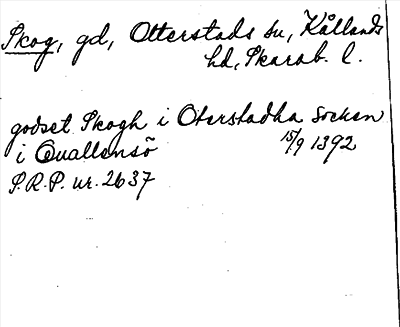 Skog, gd, Otterstads sn, Kållands
hd, Skarab. l.
godset Skogh i Oterstadha socken
i Quallensö 15/9 1392
S.R.P. nr. 2637